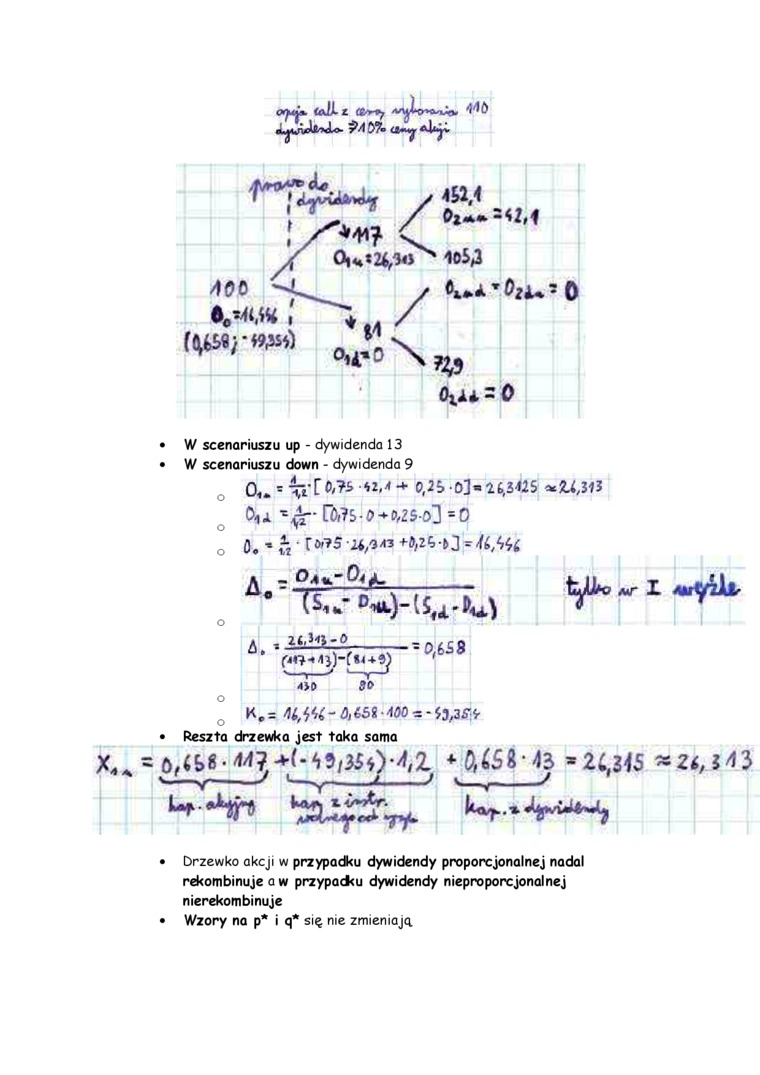 opcja call z ceną wykonania 110
dywidenda 10% ceny akcji
prawo do
dywidendy
152,1
O2uu = 42,1
117
O1u = 26,313
105,3
100
O2ud = O2du = 0
O0 = 16,446
81
(0,658; -49,354)
O1d = 0
72,9
O2dd = 0
• W scenariuszu up - dywidenda 13
• W scenariuszu down - dywidenda 9
○ O1u = 1/1,2 · [0,75 · 42,1 + 0,25 · 0] = 26,3125 ≈ 26,313
○ O1d = 1/1,2 · [0,75 · 0 + 0,25 · 0] = 0
○ O0 = 1/1,2 · [0,75 · 26,313 + 0,25 · 0] = 16,446
○ Δ0 = (O1u - O1d) / ((S1u - D1u) - (S1d - D1d)) tylko w I węźle
○ Δ0 = (26,313 - 0) / ((117 + 13) - (81 + 9)) = 0,658
130 90
○ K0 = 16,446 - 0,658 · 100 = -49,354
• Reszta drzewka jest taka sama
X1u = 0,658 · 117 + (-49,354) · 1,2 + 0,658 · 13 = 26,315 ≈ 26,313
kap. akcyjny kap. z instr. kap. z dywidendy
wolnego od ryzyka
• Drzewko akcji w przypadku dywidendy proporcjonalnej nadal
rekombinuje a w przypadku dywidendy nieproporcjonalnej
nierekombinuje
• Wzory na p* i q* się nie zmieniają